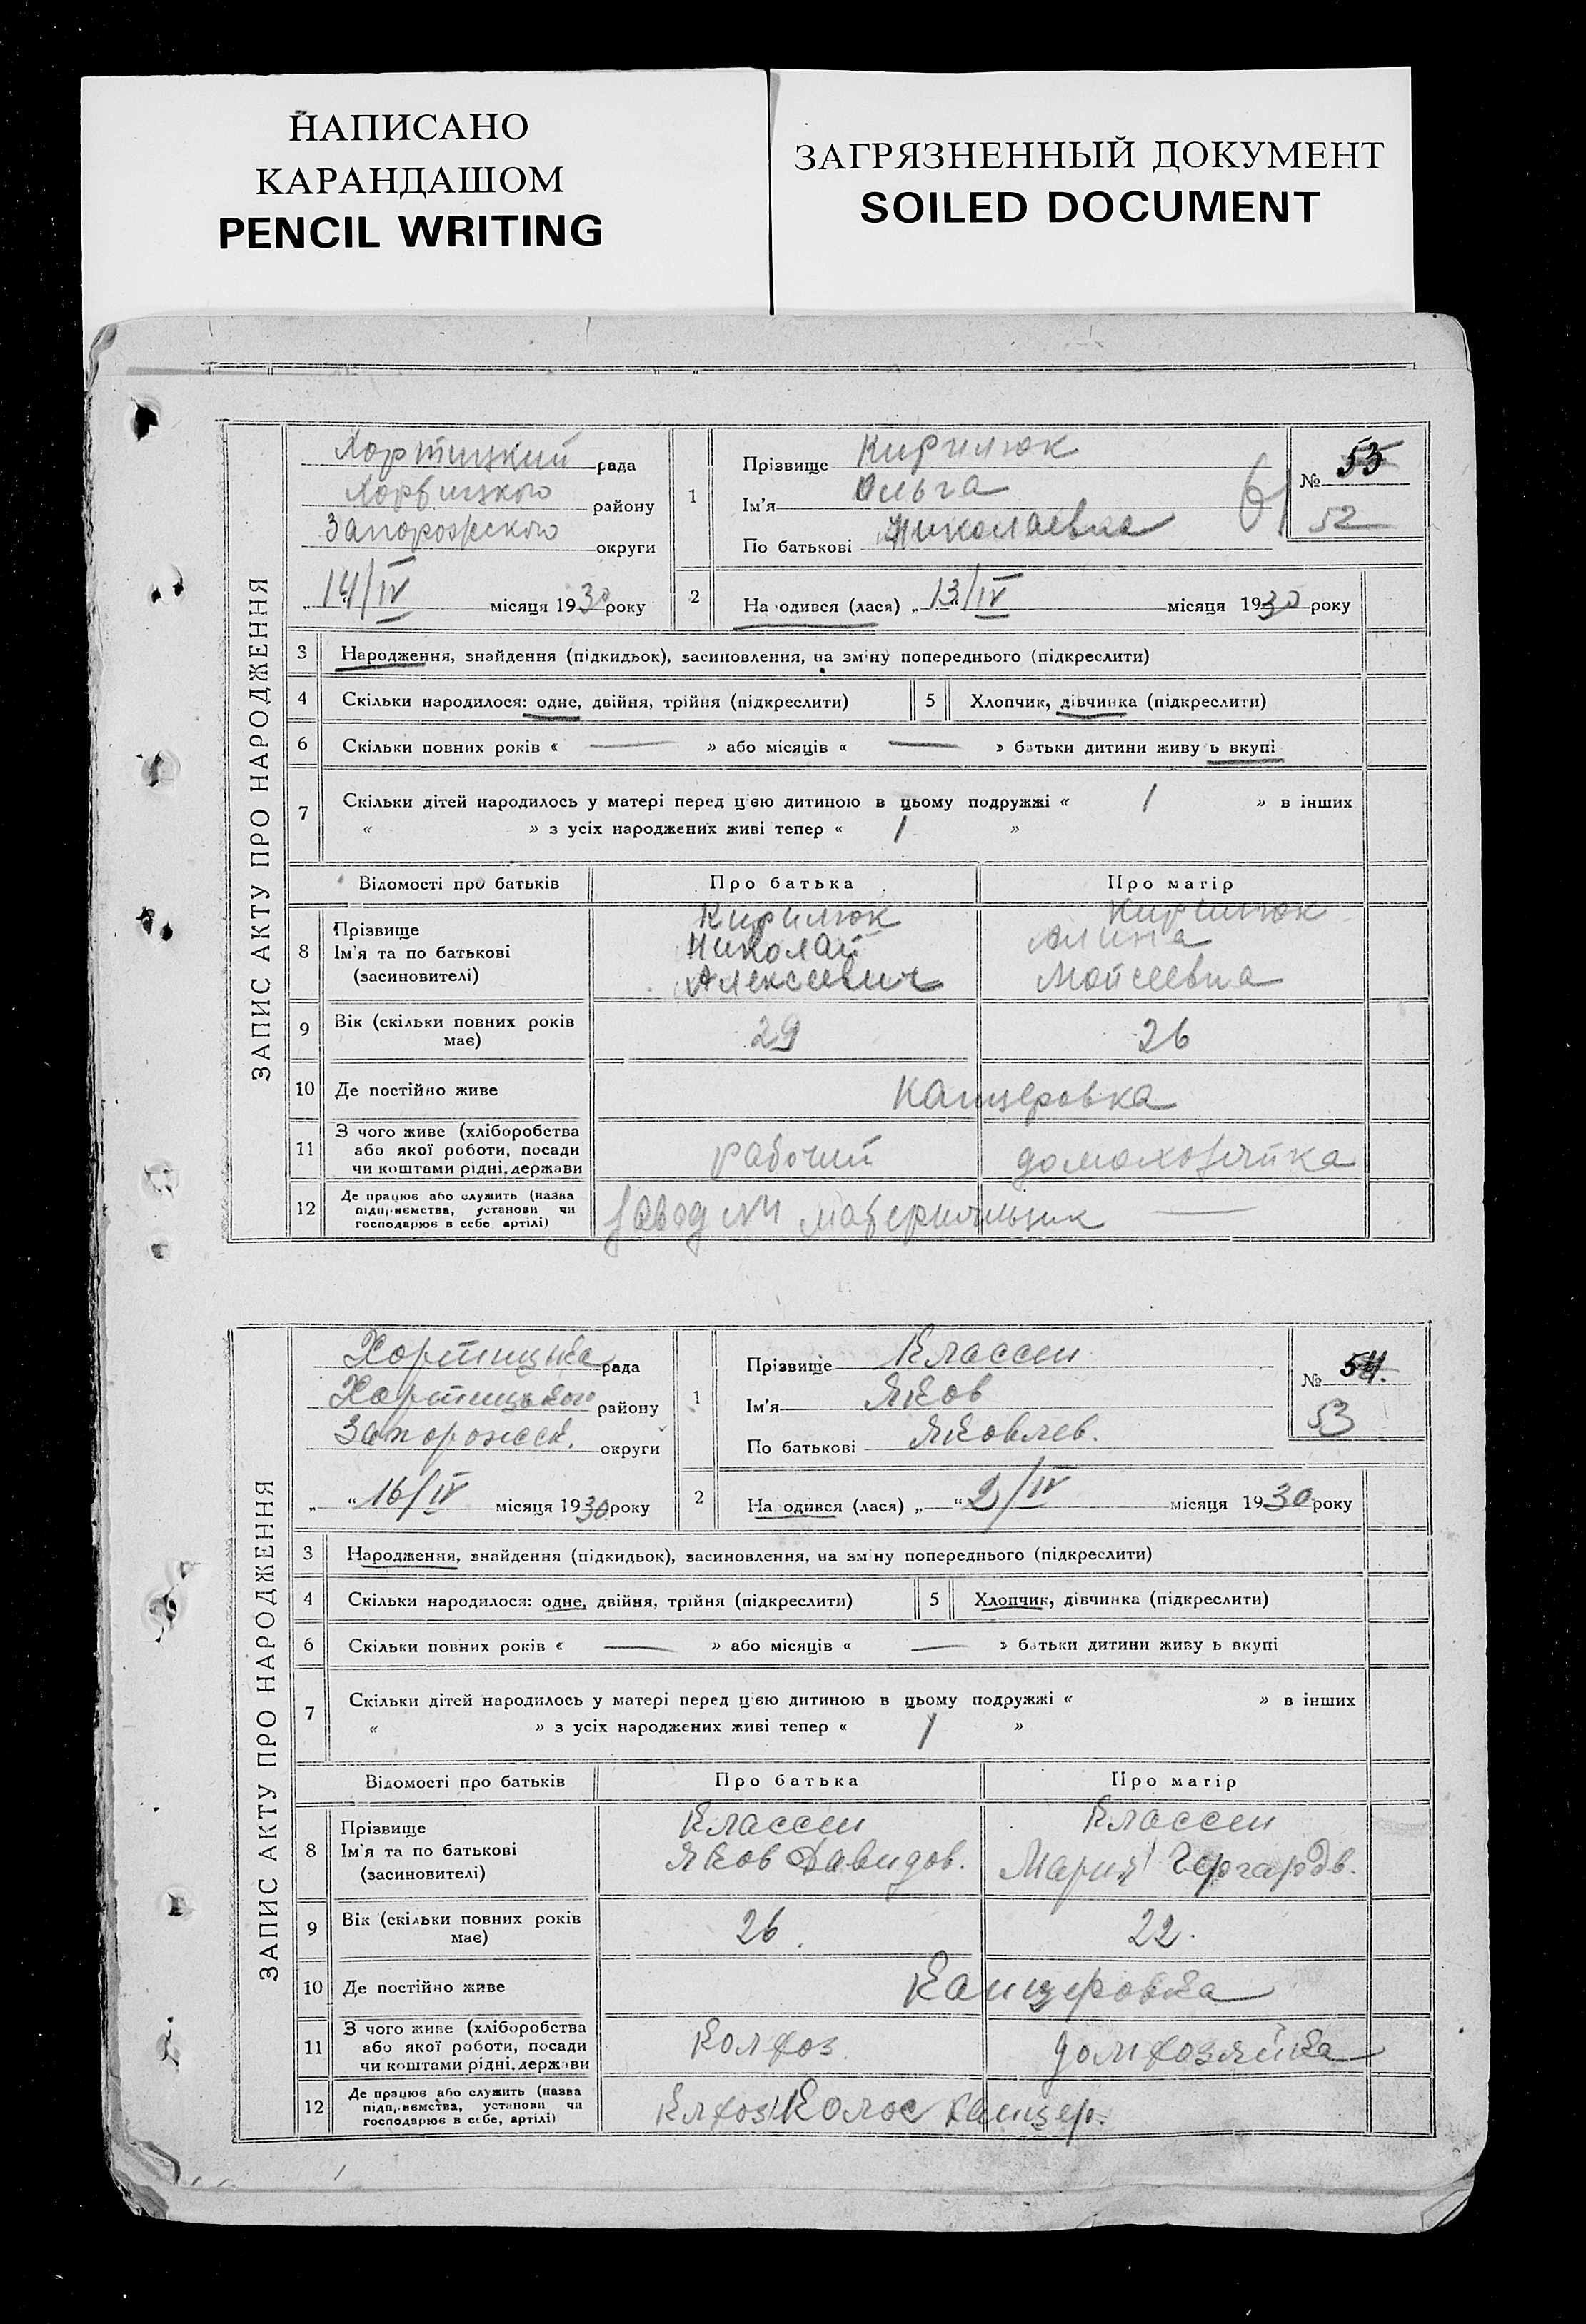 НАПИСАНО
КАРАНДАШОМ
PENCIL WRITING
ЗАГРЯЗНЕННЫЙ ДОКУМЕНТ
SOILED DOCUMENT
ЗАПИС АКТУ ПРО НАРОДЖЕННЯ
Хортицкий рада
Хортицкого району
Запорожского округи
„14/IV місяця 1930 року
1
Прізвище Кирилюк
Ім'я Ольга
По батькові Николаевна
61
№ 53
52
2 На одився (лася) „13/IV місяця 1930 року
3 Народження, знайдення (підкидьок), засиновлення, на зміну попереднього (підкреслити)
4 Скільки народилося: одне, двійня, трійня (підкреслити) 5 Хлопчик, дівчинка (підкреслити)
6 Скільки повних років « — » або місяців « — » батьки дитини живу ь вкупі
7 Скільки дітей народилось у матері перед цією дитиною в цьому подружжі « 1 » в інших
« » з усіх народжених живі тепер « 1 »
Відомості про батьків Про батька Про матір
8 Прізвище Кирилюк Кирилюк
Ім'я та по батькові Николай Алина
(засиновителі) Алексеевич Мойсеевна
9 Вік (скільки повних років має) 29 26
10 Де постійно живе Канцеровка
11 З чого живе (хліборобства
або якої роботи, посади рабочий домохозяйка
чи коштами рідні, держави
12 Де працює або служить (назва
підприємства, установи чи Завод №4 материальщик —
господарює в себе, артілі)
ЗАПИС АКТУ ПРО НАРОДЖЕННЯ
Хортицька рада
Хортицького району
Запорожск. округи
„ “16/IV місяця 1930 року
1
Прізвище Классен
Ім'я Яков
По батькові Яковлев.
№ 54.
53
2 На одився (лася) „ “2/IV місяця 1930 року
3 Народження, знайдення (підкидьок), засиновлення, на зміну попереднього (підкреслити)
4 Скільки народилося: одне, двійня, трійня (підкреслити) 5 Хлопчик, дівчинка (підкреслити)
6 Скільки повних років « — » або місяців « — » батьки дитини живу ь вкупі
7 Скільки дітей народилось у матері перед цією дитиною в цьому подружжі « » в інших
« » з усіх народжених живі тепер « 1 »
Відомості про батьків Про батька Про матір
8 Прізвище Классен Классен
Ім'я та по батькові Яков Давидов. Мария Гергардв.
(засиновителі)
9 Вік (скільки повних років має) 26. 22.
10 Де постійно живе Канцеровка
11 З чого живе (хліборобства
або якої роботи, посади Колхоз домхозяйка
чи коштами рідні, держави
12 Де працює або служить (назва
підприємства, установи чи Клхоз Колос Канцер.
господарює в себе, артілі)